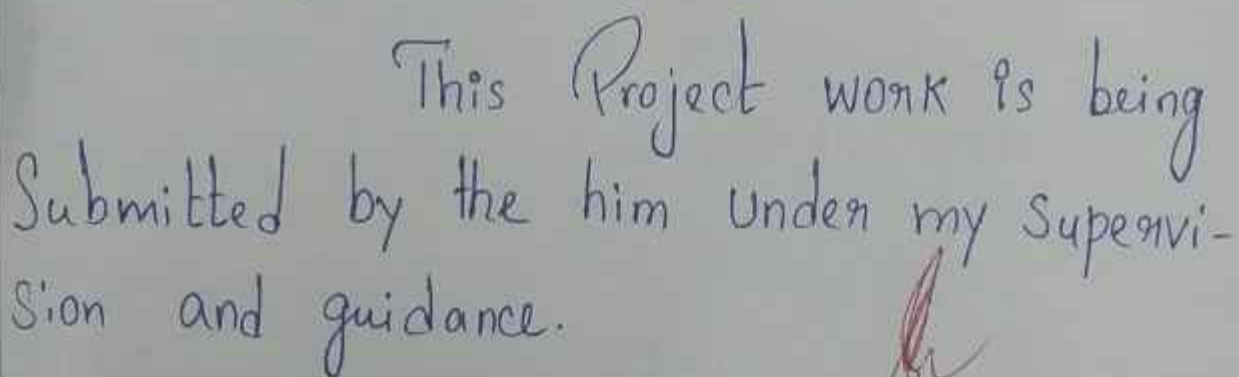 This Project work is being
Submitted by the him under my Supervi-
sion and guidance.